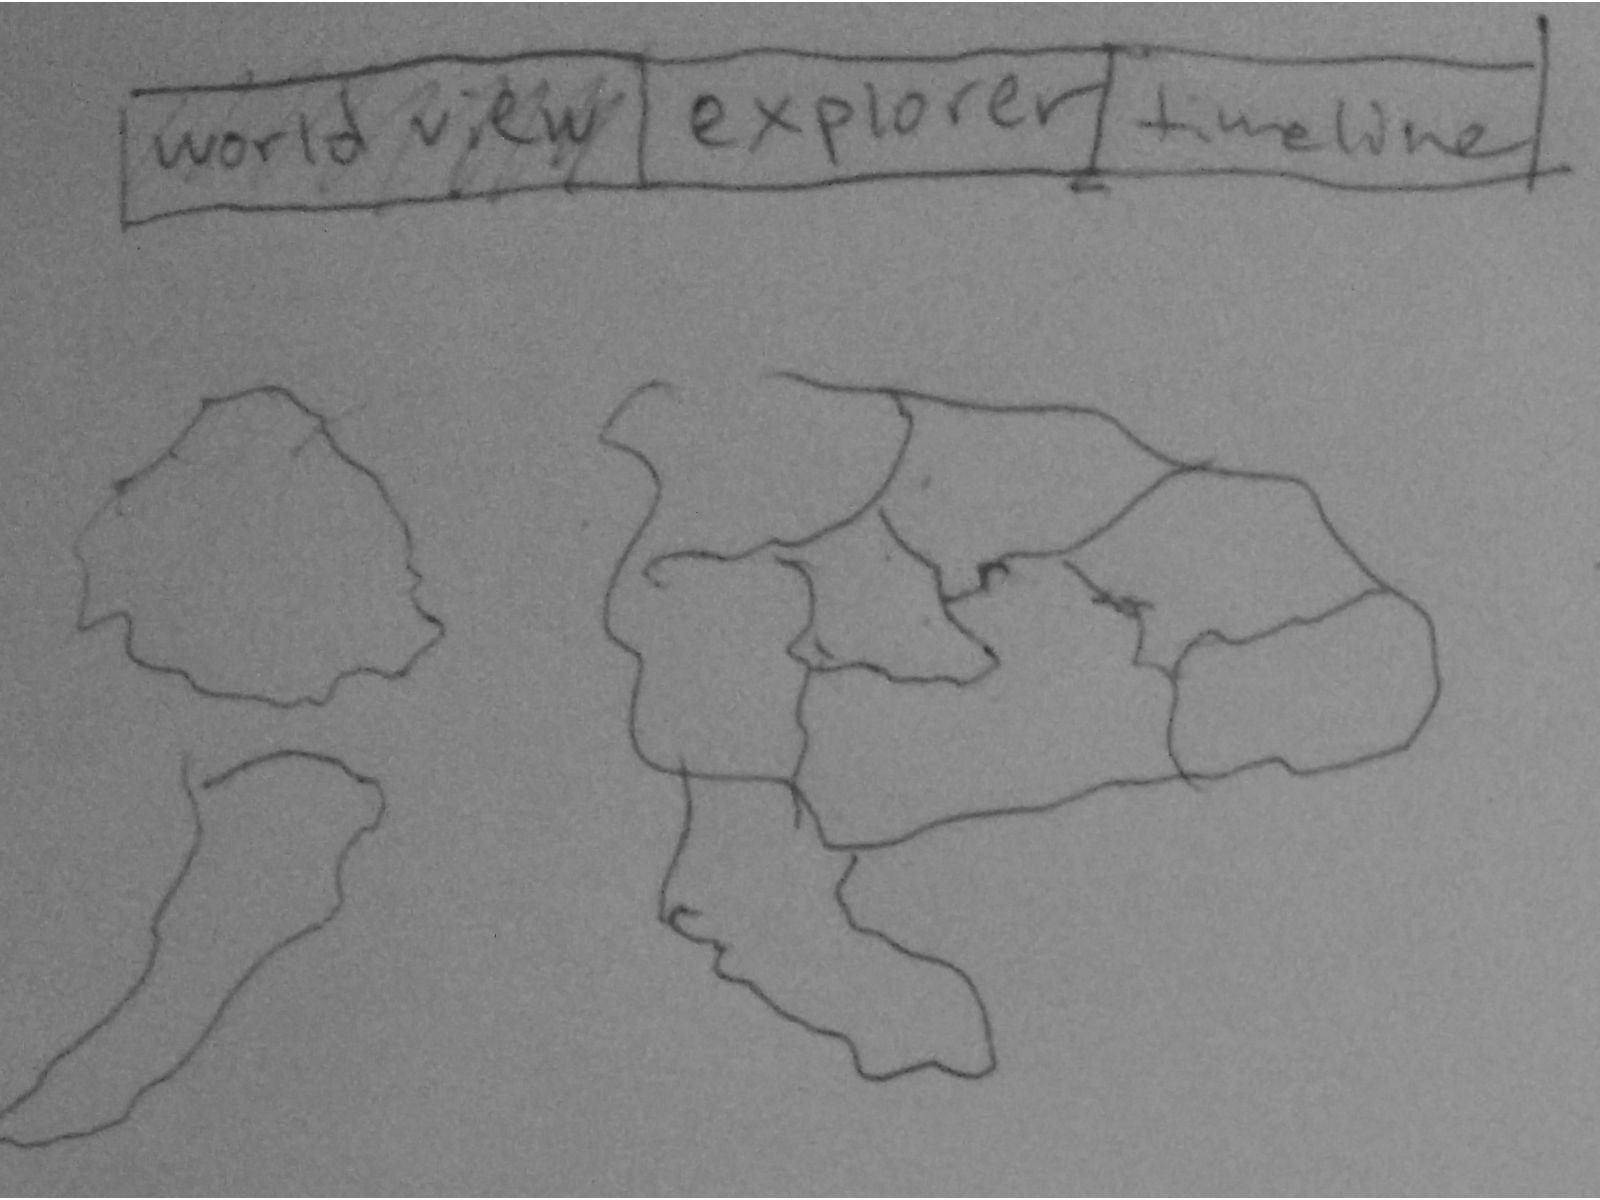 world view explorer timeline